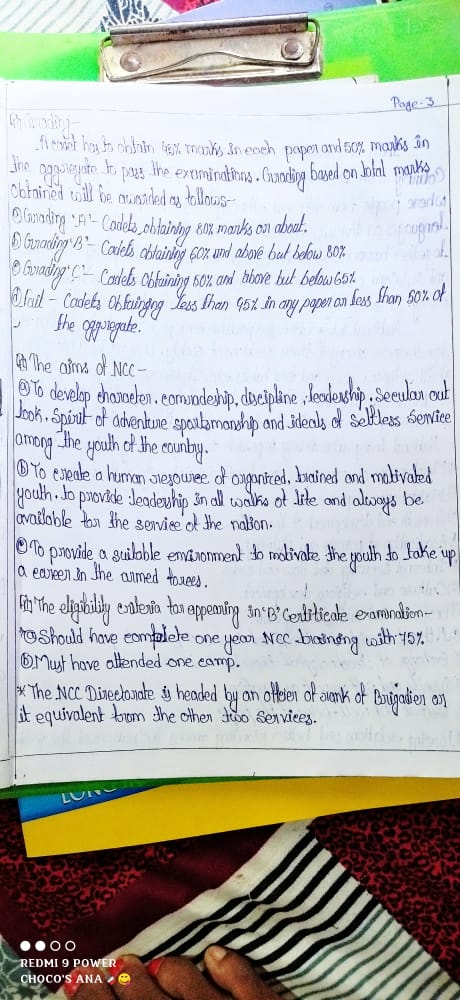 Page-3
Grading-
A cadet has to obtain 45% marks in each paper and 50% marks in
the aggregate to pass the examinations. Grading based on total marks
obtained will be awarded as follows-
ⓐ Grading 'A'- Cadets, obtaining 80% marks or about.
ⓑ Grading 'B'- Cadets obtaining 60% and above but below 80%
ⓒ Grading 'C'- Cadets Obtaining 50% and above but below 65%
ⓓ Fail - Cadets Obtainging less than 45% in any paper or less than 50% of
the aggregate.
The aims of NCC-
ⓐ To develop character, comradeship, discipline, leadership, Secular out
look, Spirit of adventure sportsmanship and ideals of Selfless Service
among the youth of the country.
ⓑ To create a human resource of organized, trained and motivated
youth, to provide leadership in all walks of life and always be
available for the service of the nation.
ⓒ To provide a suitable environment to motivate the youth to take up
a career in the armed forces.
The eligibility criteria for appearing in 'B' Certificate examination-
ⓐ Should have complete one year NCC training with 75%
ⓑ Must have attended one camp.
* The NCC Directorate is headed by an officer of rank of Brigadier or
it equivalent from the other two Services.
REDMI 9 POWER
CHOCO'S ANA